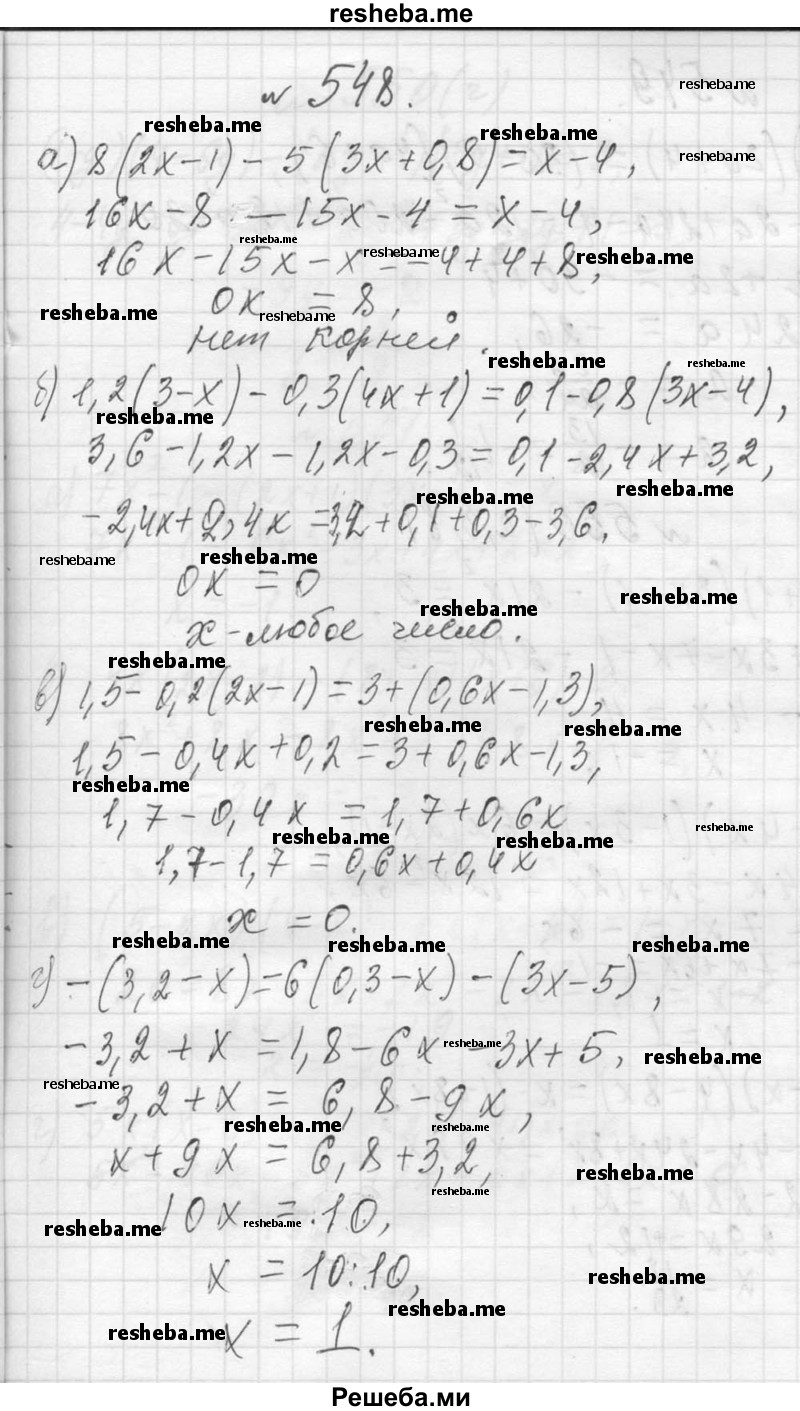 resheba.me
№ 548.
resheba.me
resheba.me resheba.me
а) 8(2x-1) - 5(3x+0,8) = x-4,
resheba.me
16x-8 -15x-4 = x-4,
resheba.me resheba.me resheba.me
16x-15x-x = -4+4+8,
resheba.me resheba.me
0x = 8,
нет корней.
resheba.me resheba.me
б) 1,2(3-x) - 0,3(4x+1) = 0,1-0,8(3x-4),
resheba.me
3,6-1,2x-1,2x-0,3 = 0,1-2,4x+3,2,
resheba.me resheba.me
-2,4x+2,4x = 3,2+0,1+0,3-3,6.
resheba.me resheba.me
0x = 0
resheba.me resheba.me
x-любое число.
resheba.me
в) 1,5-0,2(2x-1) = 3+(0,6x-1,3),
resheba.me resheba.me
1,5-0,4x+0,2 = 3+0,6x-1,3,
resheba.me
1,7-0,4x = 1,7+0,6x
resheba.me resheba.me resheba.me
1,7-1,7 = 0,6x+0,4x
x = 0.
resheba.me resheba.me resheba.me
г) -(3,2-x) = 6(0,3-x) - (3x-5),
-3,2+x = 1,8-6x-3x+5,
resheba.me resheba.me
resheba.me
-3,2+x = 6,8-9x,
resheba.me resheba.me
x+9x = 6,8+3,2,
resheba.me
resheba.me
10x = 10,
resheba.me resheba.me
x = 10:10,
resheba.me
resheba.me
x = 1.
resheba.me
Решеба.ми